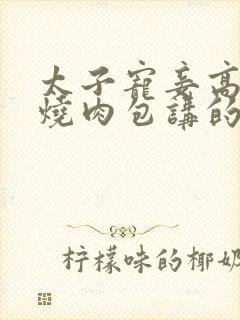 太子寵妾高
燒肉包講的
柠檬味的椰奶